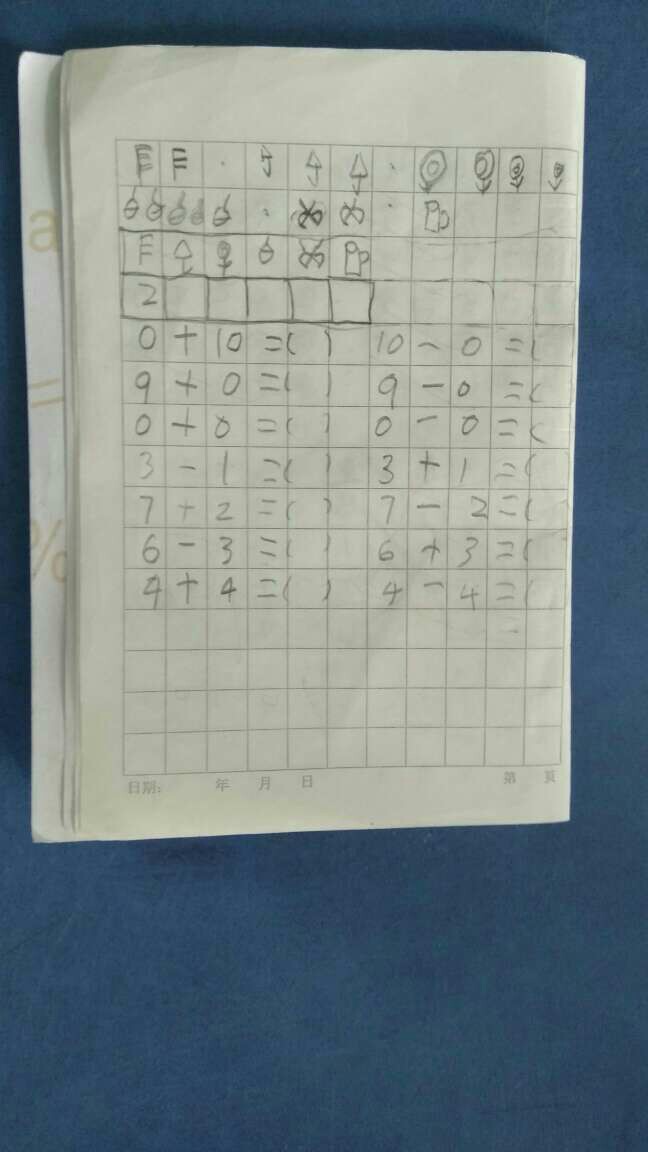 2
0 + 10 =( ) 10 - 0 =(
9 + 0 =( ) 9 - 0 =(
0 + 0 =( ) 0 - 0 =(
3 - 1 =( ) 3 + 1 =(
7 + 2 =( ) 7 - 2 =(
6 - 3 =( ) 6 + 3 =(
4 + 4 =( ) 4 - 4 =(
日期: 年 月 日 第 页
a
=
%